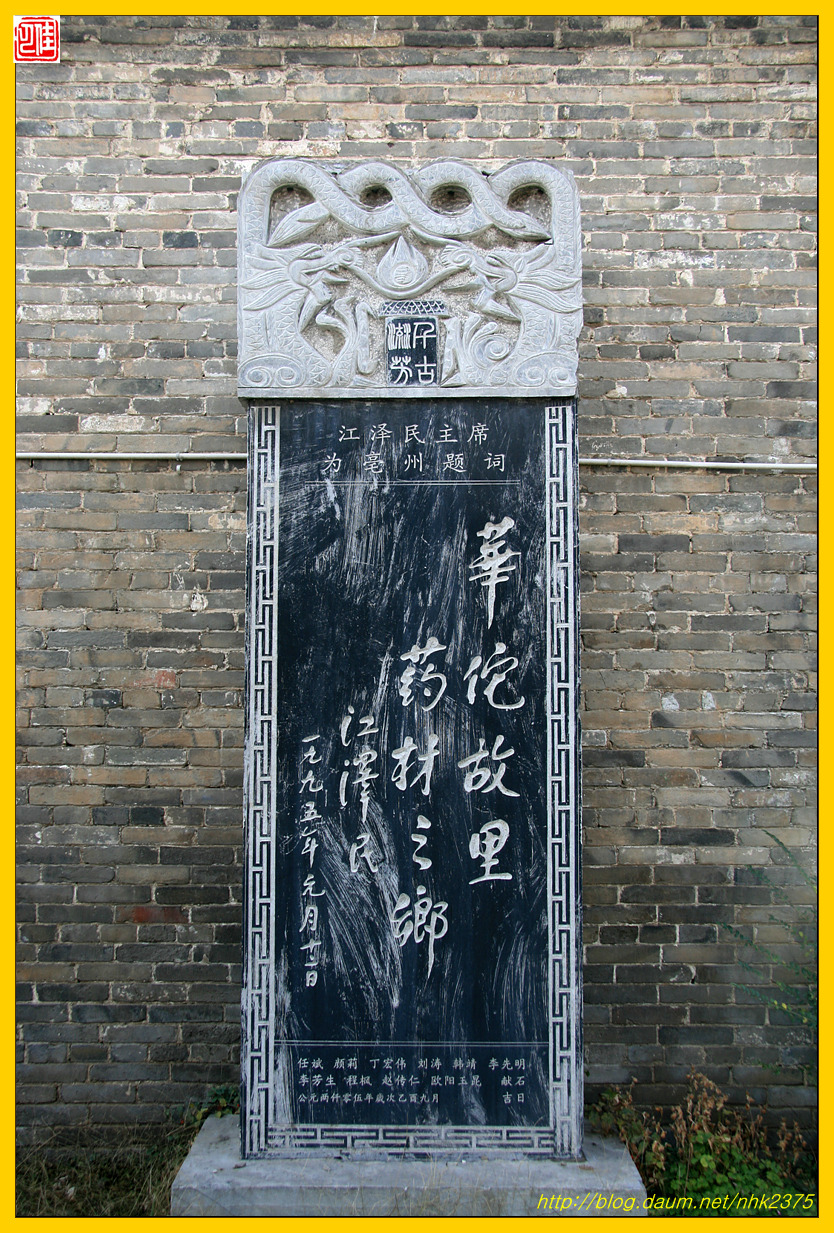 千古
流芳
江泽民主席
为亳州题词
華佗故里
药材之鄉
江澤民
一九九五年元月十二日
任斌 颜莉 丁宏伟 刘涛 韩靖 李先明
李芳生 程枫 赵传仁 欧阳玉昆 献石
公元两仟零伍年歲次乙酉九月 吉日
http://blog.daum.net/nhk2375